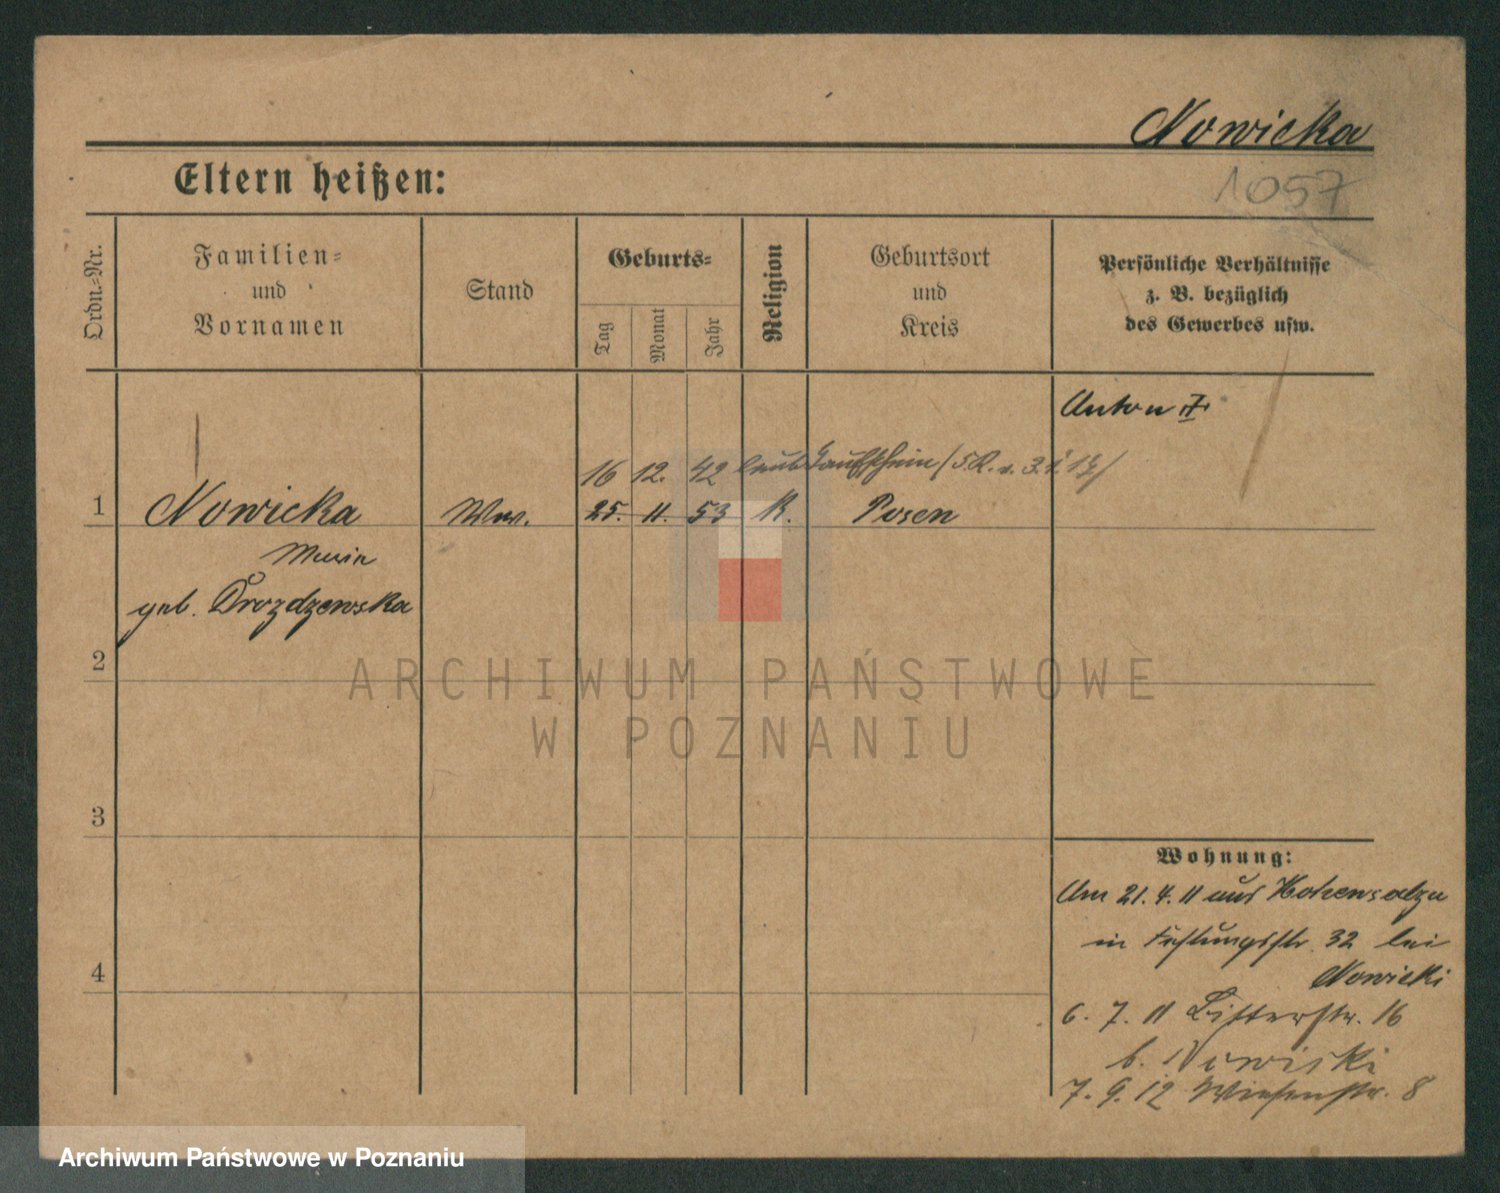 Nowicka
1057
Eltern heißen:
Ordn.-Nr.
Familien-
und
Vornamen
Stand
Geburts-
Tag
Monat
Jahr
Religion
Geburtsort
und
Kreis
Persönliche Verhältnisse
z. B. bezüglich
des Gewerbes usw.
Anton
16 12. 42 laut Taufschein
1 Nowicka Ww. 25. 11. 53 K. Posen
Maria
geb. Drozdzewska
2
3
4
Wohnung:
Am 21.4.11 aus Hohensalza
in Festungsstr. 32 bei
Nowicki
6. 7. 11 Bitterstr. 16
b. Nowicki
7. 9. 12 Wiesenstr. 8
ARCHIWUM PAŃSTWOWE
W POZNANIU
Archiwum Państwowe w Poznaniu